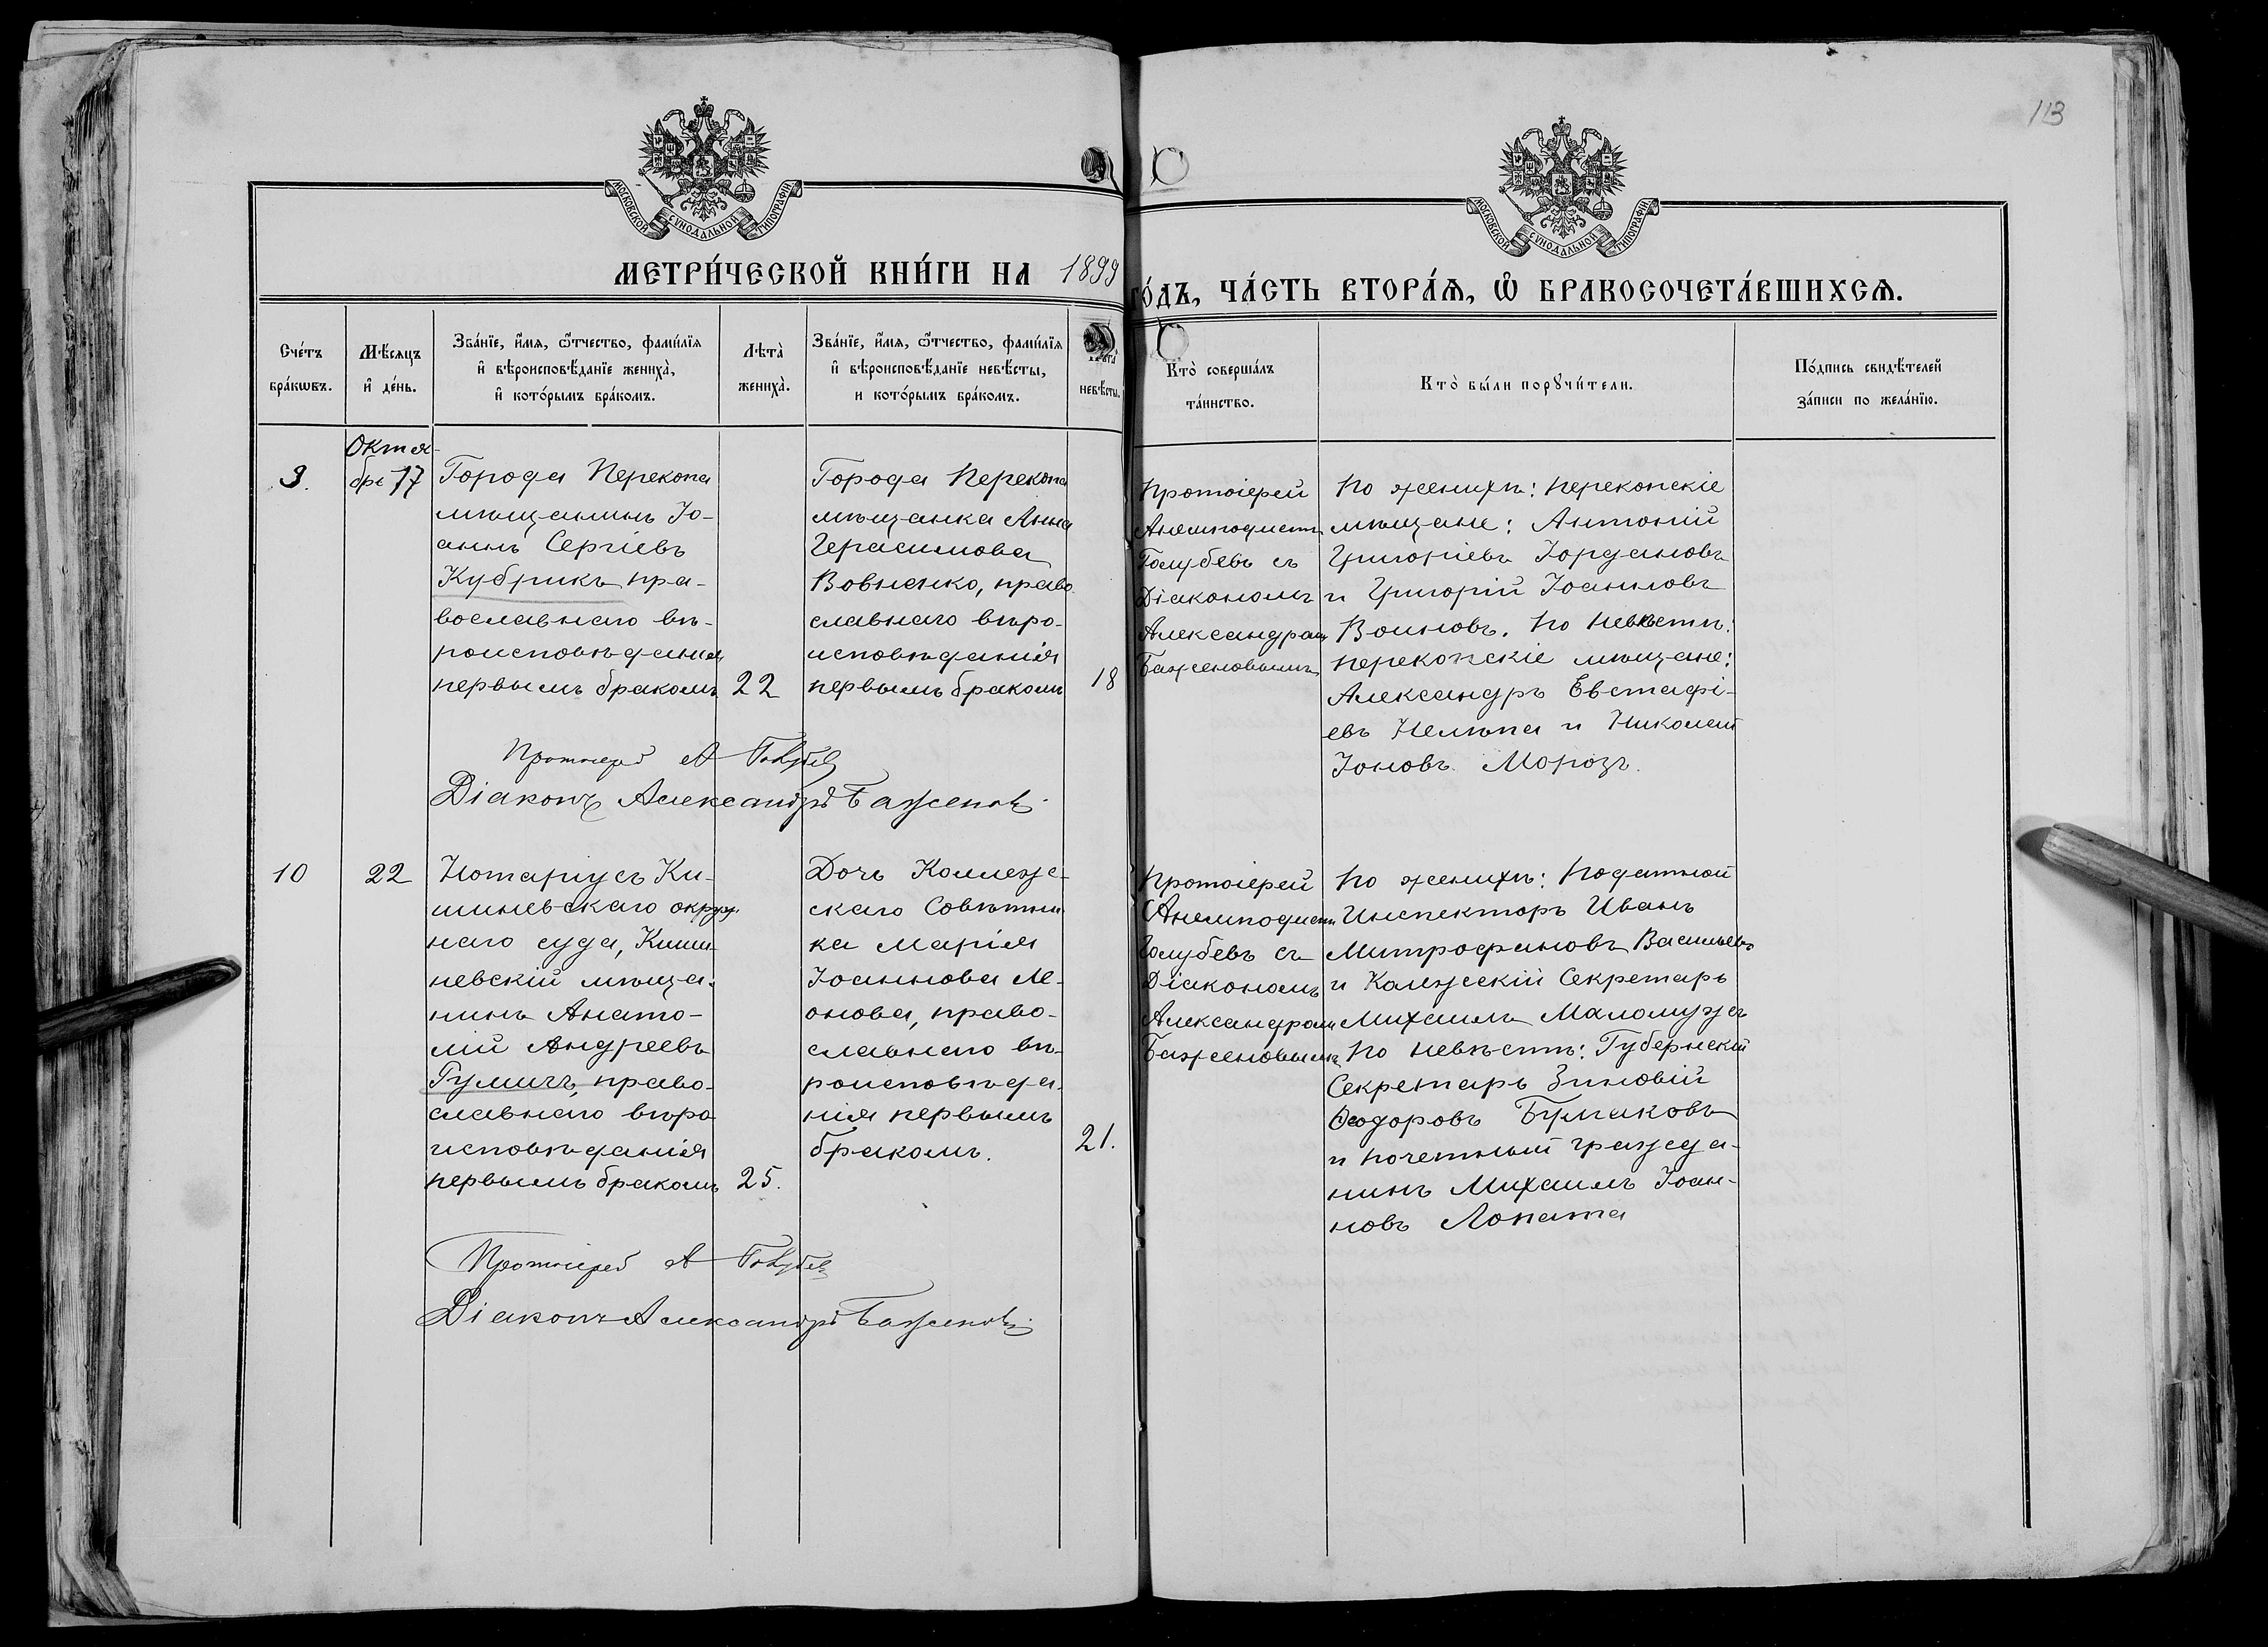 113
МОСКОВСКОЙ СѴНОДАЛЬНОЙ ТИПОГРАФІИ
МОСКОВСКОЙ СѴНОДАЛЬНОЙ ТИПОГРАФІИ
МЕТРИ́ЧЕСКОЙ КНИ́ГИ НА 1899
ГО́ДЪ, ЧА́СТЬ ВТОРА́Ѧ, Ѽ БРАКОСОЧЕТА́ВШИХСѦ.
Сче́тъ
бра́кѡвъ.
Мѣ́сяцъ
и҆ де́нь.
Зва́нїе, и҆́мя, ѻ҆́тчество, фами́лїя
и҆ вѣроисповѣ́данїе жениха̀,
и҆ кото́рымъ бра́комъ.
Лѣта̀
жениха̀.
Зва́нїе, и҆́мя, ѻ҆́тчество, фами́лїя
и҆ вѣроисповѣ́данїе невѣ́сты,
и кото́рымъ бра́комъ.
Лѣта̀
невѣ́сты.
Кто̀ соверша́лъ
та́инство.
Кто̀ бы́ли порꙋчи́тели.
По́дпись свидѣ́телей
за́писи по жела́нїю.
9.
Октя-
бре 17
Города Перекопа
мѣщанинъ Іо-
аннъ Сергіевъ
Кубрикъ пра-
вославнаго вѣ-
роисповѣданія
первымъ бракомъ
22
Города Перекопа
мѣщанка Анна
Герасимова
Вовненко, право-
славнаго вѣро-
исповѣданія
первымъ бракомъ
18
Протоіерей
Анемподистъ
Голубевъ съ
Діакономъ
Александромъ
Баженовымъ
По женихѣ: перекопскіе
мѣщане: Антоній
Григоріевъ Іордановъ
и Григорій Іоанновъ
Воиновъ. По невѣстѣ:
перекопскіе мѣщане:
Александръ Евстафі-
евъ Нелѣпа и Николай
Іоновъ Морозъ.
Протоіерей А Голубевъ
Діаконъ Александръ Баженовъ.
10
22
Нотаріусъ Ки-
шиневскаго окруж-
наго суда, Киши-
невскій мѣща-
нинъ Анато-
лій Андреевъ
Гумичъ, право-
славнаго вѣро
исповѣданія
первымъ бракомъ
25.
Дочь Коллеж-
скаго Совѣтни-
ка Марія
Іоаннова Ле-
онова, право-
славнаго вѣ-
роисповѣда-
нія первымъ
бракомъ.
21.
Протоіерей
Анемподистъ
Голубевъ съ
Діакономъ
Александромъ
Баженовымъ
По женихѣ: Податной
Инспекторъ Иванъ
Митрофановъ Васильевъ
и Колежскій Секретарь
Михаилъ Маломужъ
По невѣстѣ: Губернскій
Секретарь Зиновій
Ѳеодоровъ Бумаковъ
и почетный гражда-
нинъ Михаилъ Іоан-
новъ Лопата
Протоіерей А Голубевъ
Діаконъ Александръ Баженовъ.